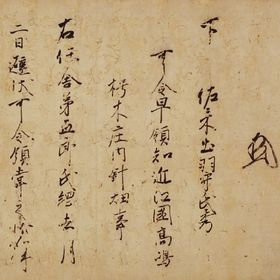 下　佐々木出羽守氏秀
可令早領知近江國高嶋
朽木庄内針畑事
右任舎弟五郎氏
二日避状可令領掌之状如件